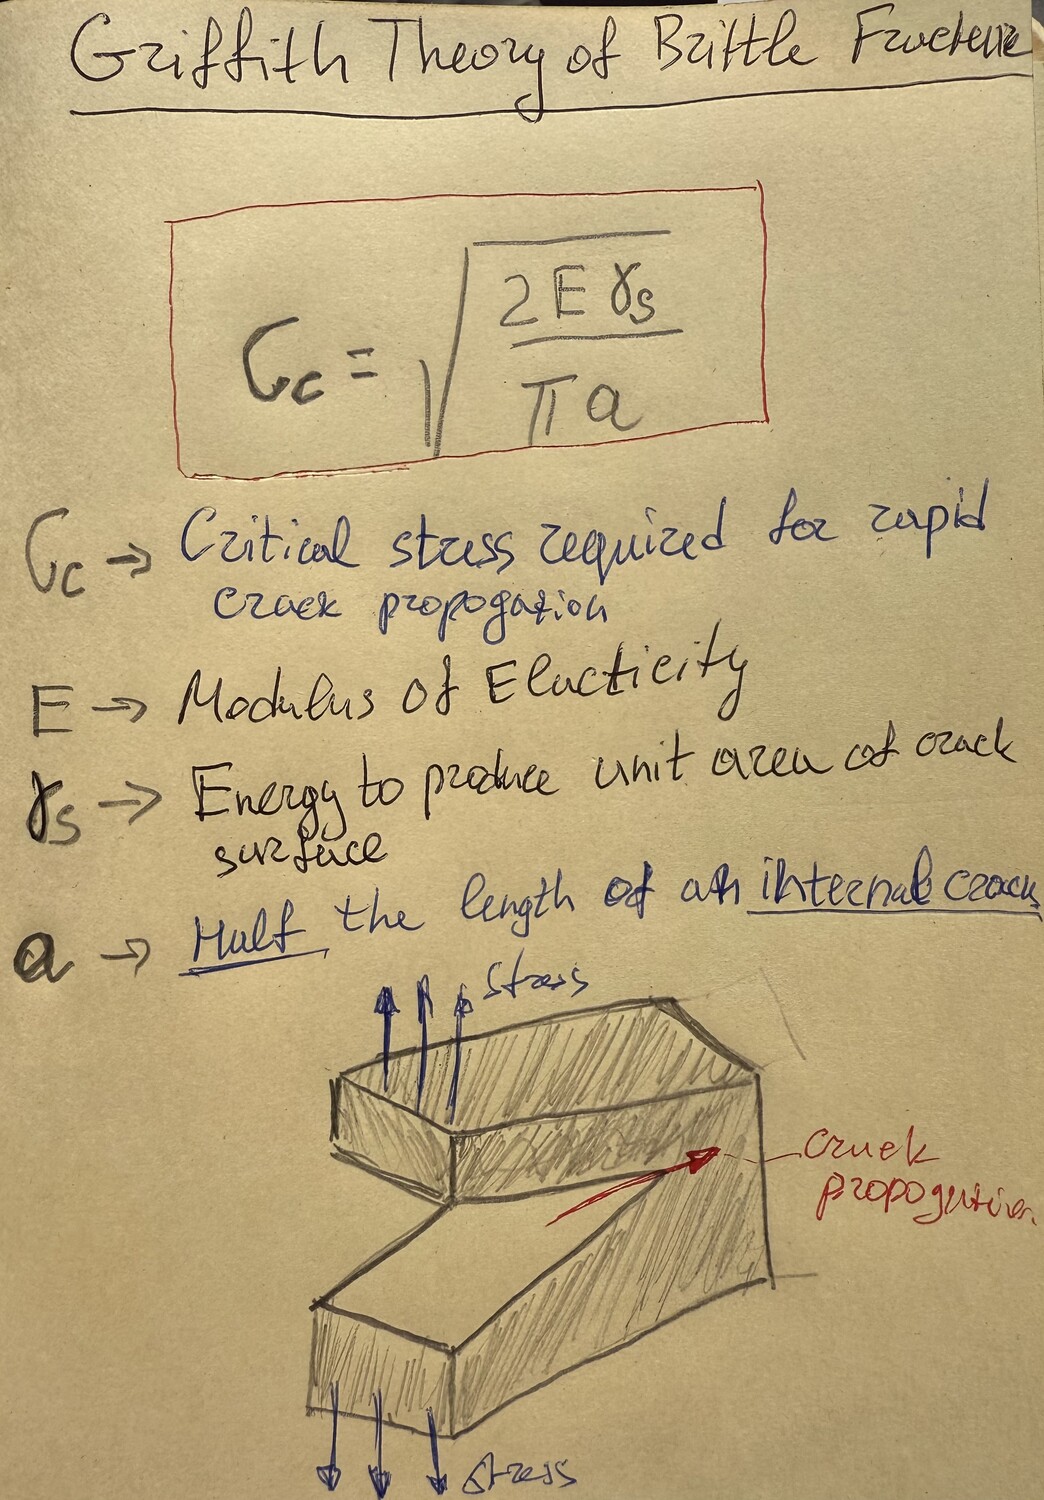 Griffith Theory of Brittle Fracture
σc = √(2Eγs / πa)
σc → Critical stress required for rapid
crack propogation
E → Modulus of Elacticity
γs → Energy to produce unit area of crack
surface
a → Half the length of an internal crack
Stress
Crack
propogation
Stress